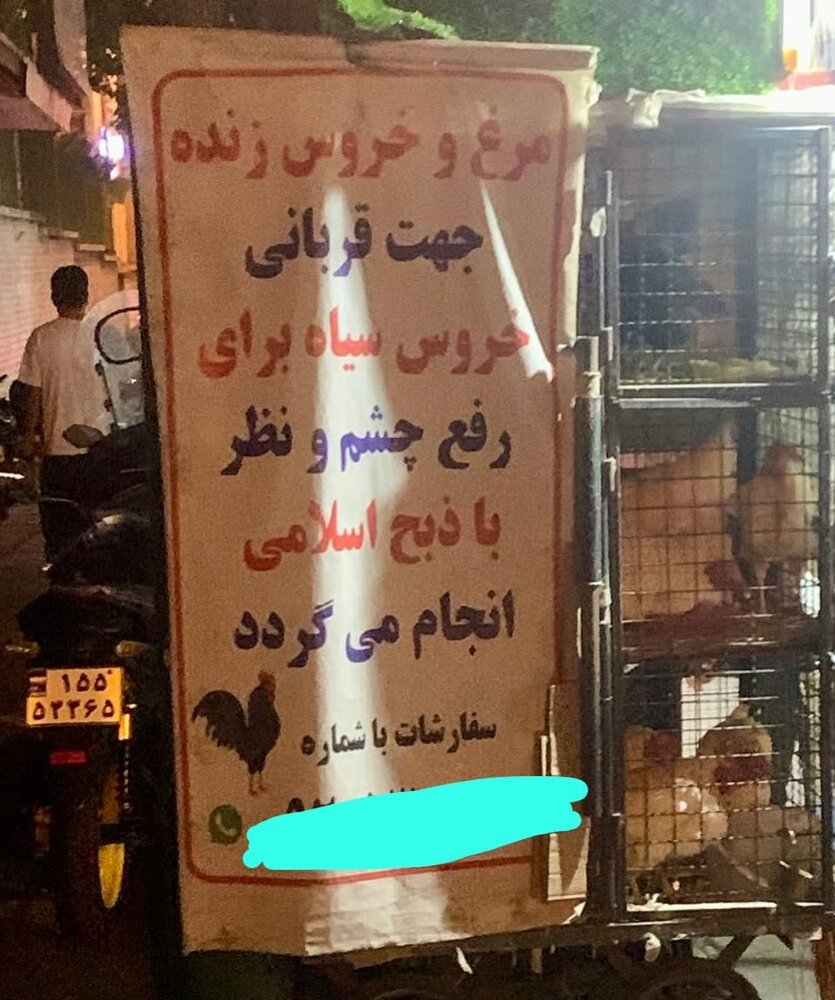 مرغ و خروس زنده
جهت قربانی
خروس سیاه برای
رفع چشم و نظر
با ذبح اسلامی
انجام می گردد
سفارشات با شماره
۱۵۵
۵۳۳۶۵